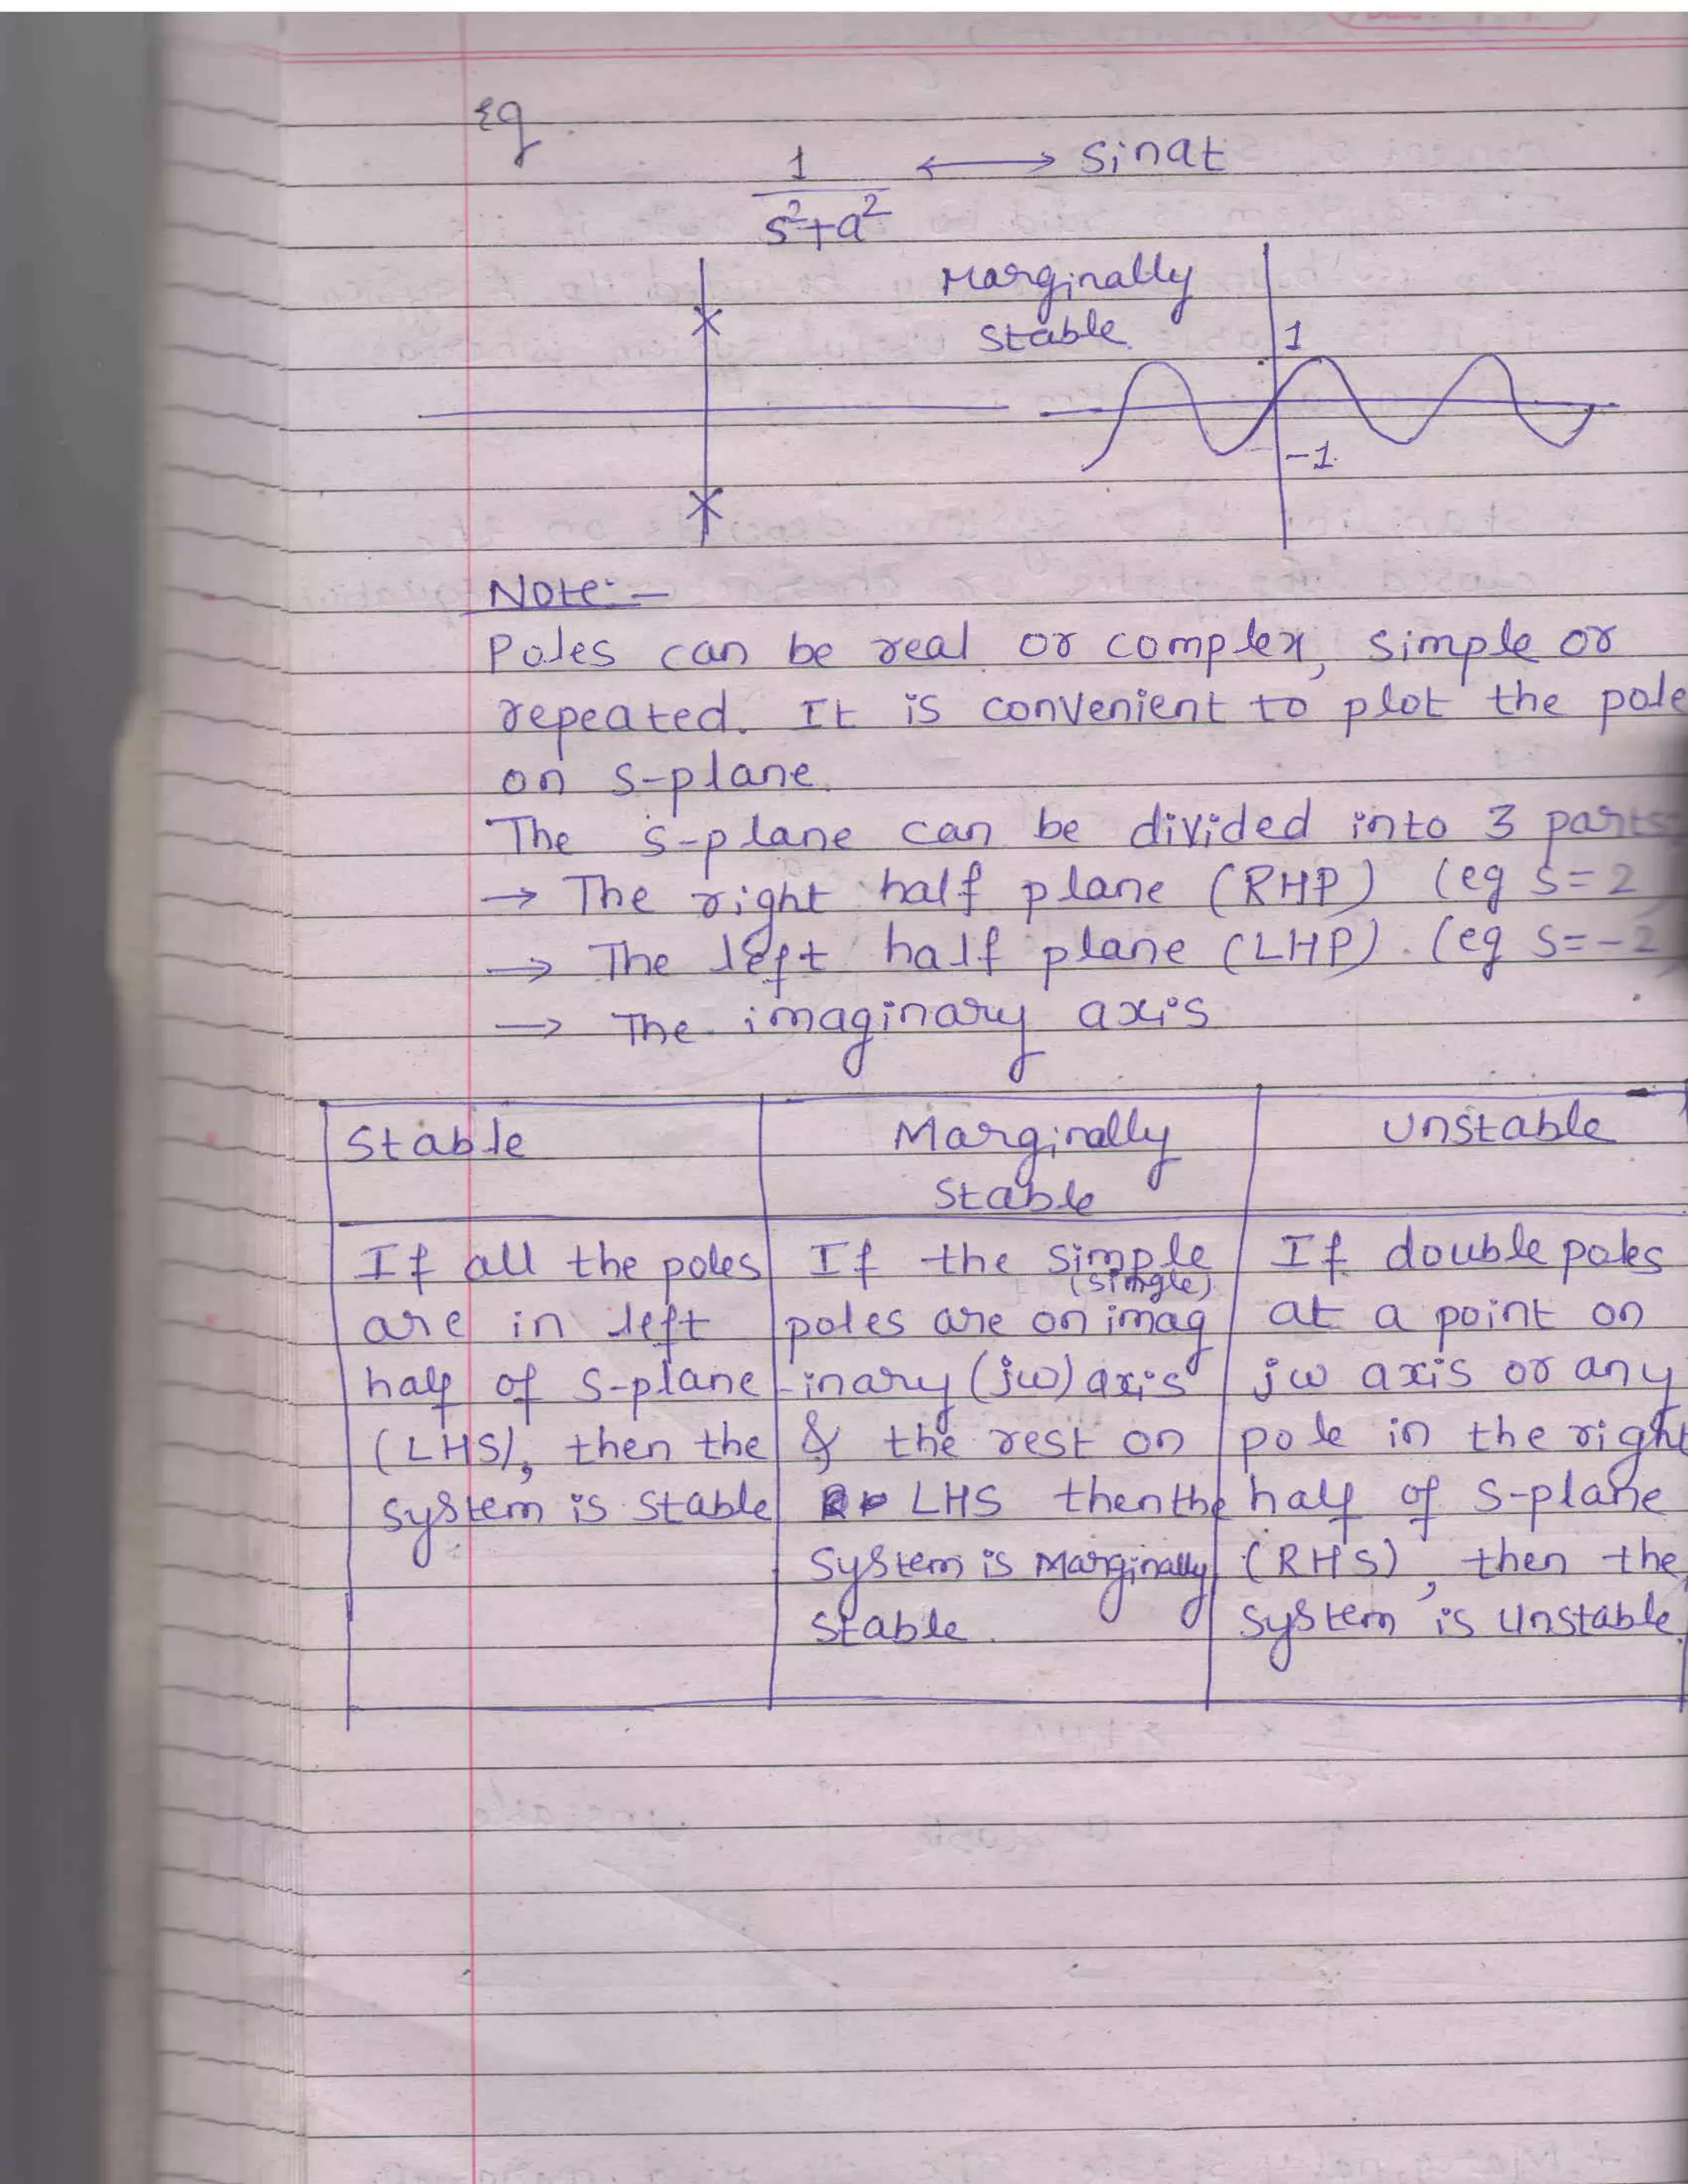 eg
1 ⟷ Sinat
s²+a²
Marginally
Stable.
1
-1.
Note:-
Poles can be real or complex, simple or
repeated. It is convenient to plot the pole
on s-plane.
The s-plane can be divided into 3 parts
→ The right half plane (RHP) (eg s=2
→ The left half plane (LHP). (eg s=-2
→ The imaginary axis
Stable Marginally Unstable
Stable
If all the poles
are in left
half of s-plane
(LHS), then the
system is stable
If the simple
(single)
poles are on imag
-inary (jω) axis
& the rest on
LHS then the
system is Marginally
Stable.
If double poles
at a point on
jω axis or any
pole in the right
half of s-plane
(RHS), then the
system is unstable